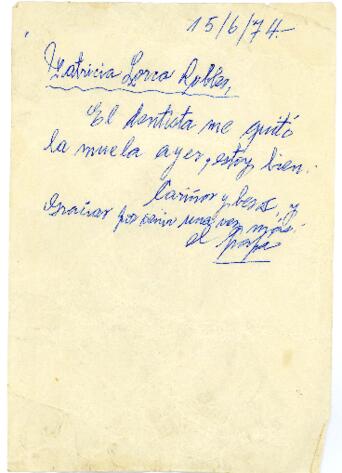 15/6/74-
Patricia Lorca Robles,
El dentista me quitó
la muela ayer, estoy bien.
Cariños y besos, y
Gracias por venir una vez más.
el papi